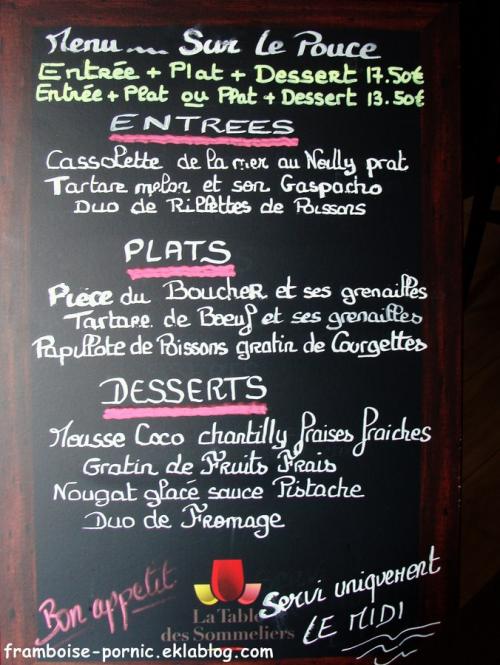 Menu.... Sur Le Pouce
Entrée + Plat + Dessert 17.50€
Entrée + Plat ou Plat + Dessert 13.50€
ENTREES
Cassolette de la mer au Noilly prat
Tartare melon et son Gaspacho
Duo de Rillettes de Poissons
PLATS
Pièce du Boucher et ses grenailles
Tartare de Boeuf et ses grenailles
Papillote de Poissons gratin de Courgettes
DESSERTS
Mousse Coco chantilly fraises fraiches
Gratin de Fruits Frais
Nougat glacé sauce Pistache
Duo de Fromage
Bon appetit
La Table
des Sommeliers
Servi uniquement
LE MIDI
framboise-pornic.eklablog.com